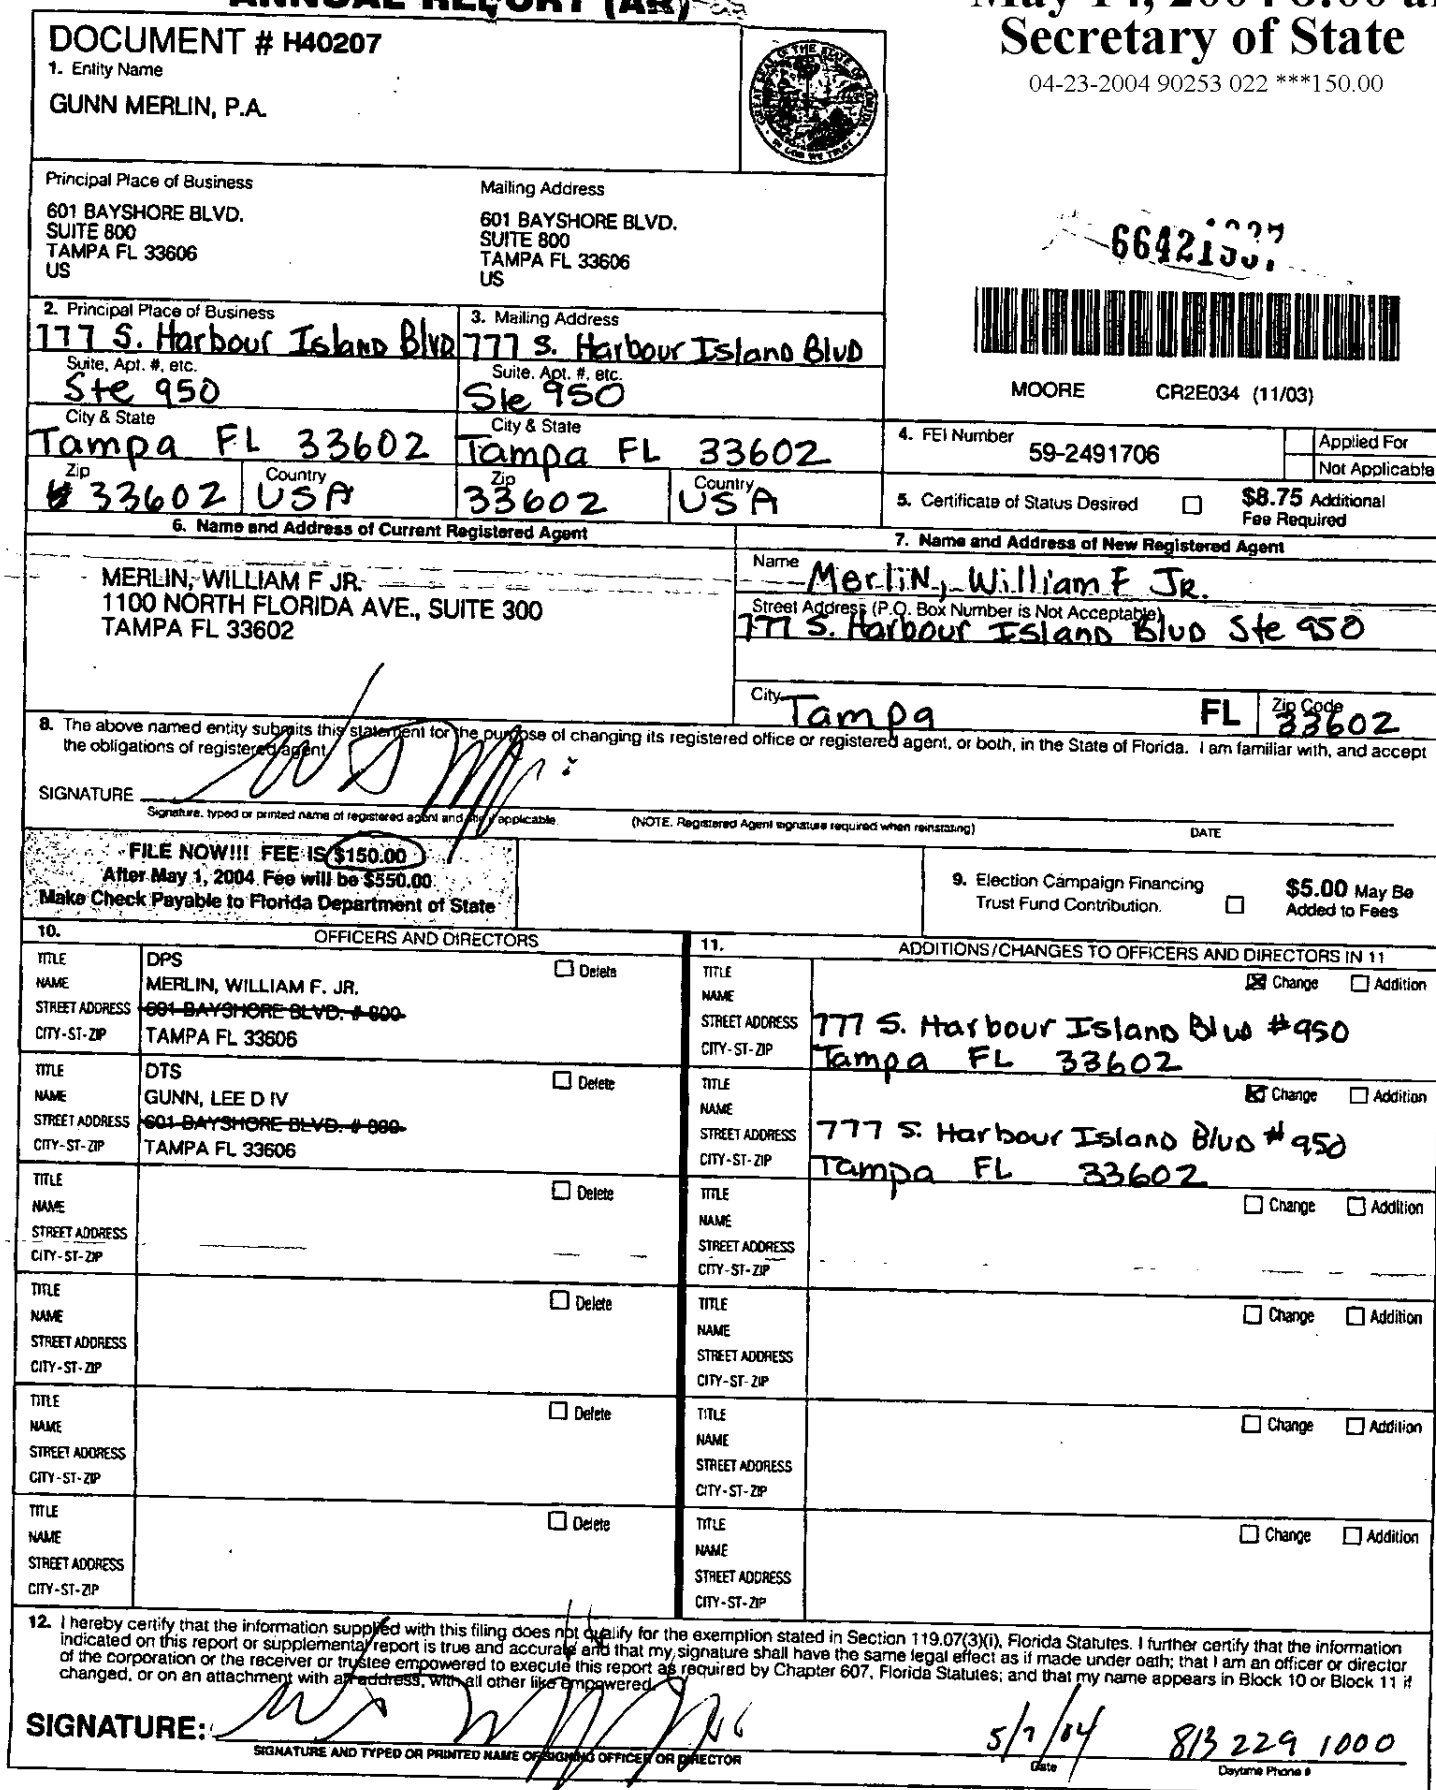 ANNUAL REPORT (AR)
May 14, 2004 8:00 a
Secretary of State
04-23-2004 90253 022 ***150.00
DOCUMENT # H40207
1. Entity Name
GUNN MERLIN, P.A.
Principal Place of Business
601 BAYSHORE BLVD.
SUITE 800
TAMPA FL 33606
US
Mailing Address
601 BAYSHORE BLVD.
SUITE 800
TAMPA FL 33606
US
MOORE CR2E034 (11/03)
2. Principal Place of Business
777 S. Harbour Island Blvd
Suite, Apt. #, etc.
Ste 950
City & State
Tampa FL 33602
Zip
33602
Country
USA
3. Mailing Address
777 S. Harbour Island Blvd
Suite, Apt. #, etc.
Ste 950
City & State
Tampa FL 33602
Zip
33602
Country
USA
4. FEI Number
59-2491706
Applied For
Not Applicable
5. Certificate of Status Desired
$8.75 Additional
Fee Required
6. Name and Address of Current Registered Agent
MERLIN, WILLIAM F JR.
1100 NORTH FLORIDA AVE., SUITE 300
TAMPA FL 33602
7. Name and Address of New Registered Agent
Name
Merlin, William F Jr.
Street Address (P.O. Box Number is Not Acceptable)
777 S. Harbour Island Blvd Ste 950
City
Tampa
FL
Zip Code
33602
8. The above named entity submits this statement for the purpose of changing its registered office or registered agent, or both, in the State of Florida. I am familiar with, and accept
the obligations of registered agent.
SIGNATURE
Signature, typed or printed name of registered agent and title if applicable.
(NOTE. Registered Agent signature required when reinstating)
DATE
FILE NOW!!! FEE IS $150.00
After May 1, 2004 Fee will be $550.00
Make Check Payable to Florida Department of State
9. Election Campaign Financing
Trust Fund Contribution.
$5.00 May Be
Added to Fees
10. OFFICERS AND DIRECTORS
TITLE DPS
Delete
NAME MERLIN, WILLIAM F. JR.
STREET ADDRESS 601 BAYSHORE BLVD. # 800
CITY-ST-ZIP TAMPA FL 33606
TITLE DTS
Delete
NAME GUNN, LEE D IV
STREET ADDRESS 601 BAYSHORE BLVD. # 800
CITY-ST-ZIP TAMPA FL 33606
TITLE
Delete
NAME
STREET ADDRESS
CITY-ST-ZIP
TITLE
Delete
NAME
STREET ADDRESS
CITY-ST-ZIP
TITLE
Delete
NAME
STREET ADDRESS
CITY-ST-ZIP
TITLE
Delete
NAME
STREET ADDRESS
CITY-ST-ZIP
11. ADDITIONS/CHANGES TO OFFICERS AND DIRECTORS IN 11
TITLE
Change Addition
NAME
STREET ADDRESS 777 S. Harbour Island Blvd #950
CITY-ST-ZIP Tampa FL 33602
TITLE
Change Addition
NAME
STREET ADDRESS 777 S. Harbour Island Blvd #950
CITY-ST-ZIP Tampa FL 33602
TITLE
Change Addition
NAME
STREET ADDRESS
CITY-ST-ZIP
TITLE
Change Addition
NAME
STREET ADDRESS
CITY-ST-ZIP
TITLE
Change Addition
NAME
STREET ADDRESS
CITY-ST-ZIP
TITLE
Change Addition
NAME
STREET ADDRESS
CITY-ST-ZIP
12. I hereby certify that the information supplied with this filing does not qualify for the exemption stated in Section 119.07(3)(i), Florida Statutes. I further certify that the information
indicated on this report or supplemental report is true and accurate and that my signature shall have the same legal effect as if made under oath; that I am an officer or director
of the corporation or the receiver or trustee empowered to execute this report as required by Chapter 607, Florida Statutes; and that my name appears in Block 10 or Block 11 if
changed, or on an attachment with an address, with all other like empowered.
SIGNATURE:
SIGNATURE AND TYPED OR PRINTED NAME OF SIGNING OFFICER OR DIRECTOR
5/7/04
Date
813 229 1000
Daytime Phone #